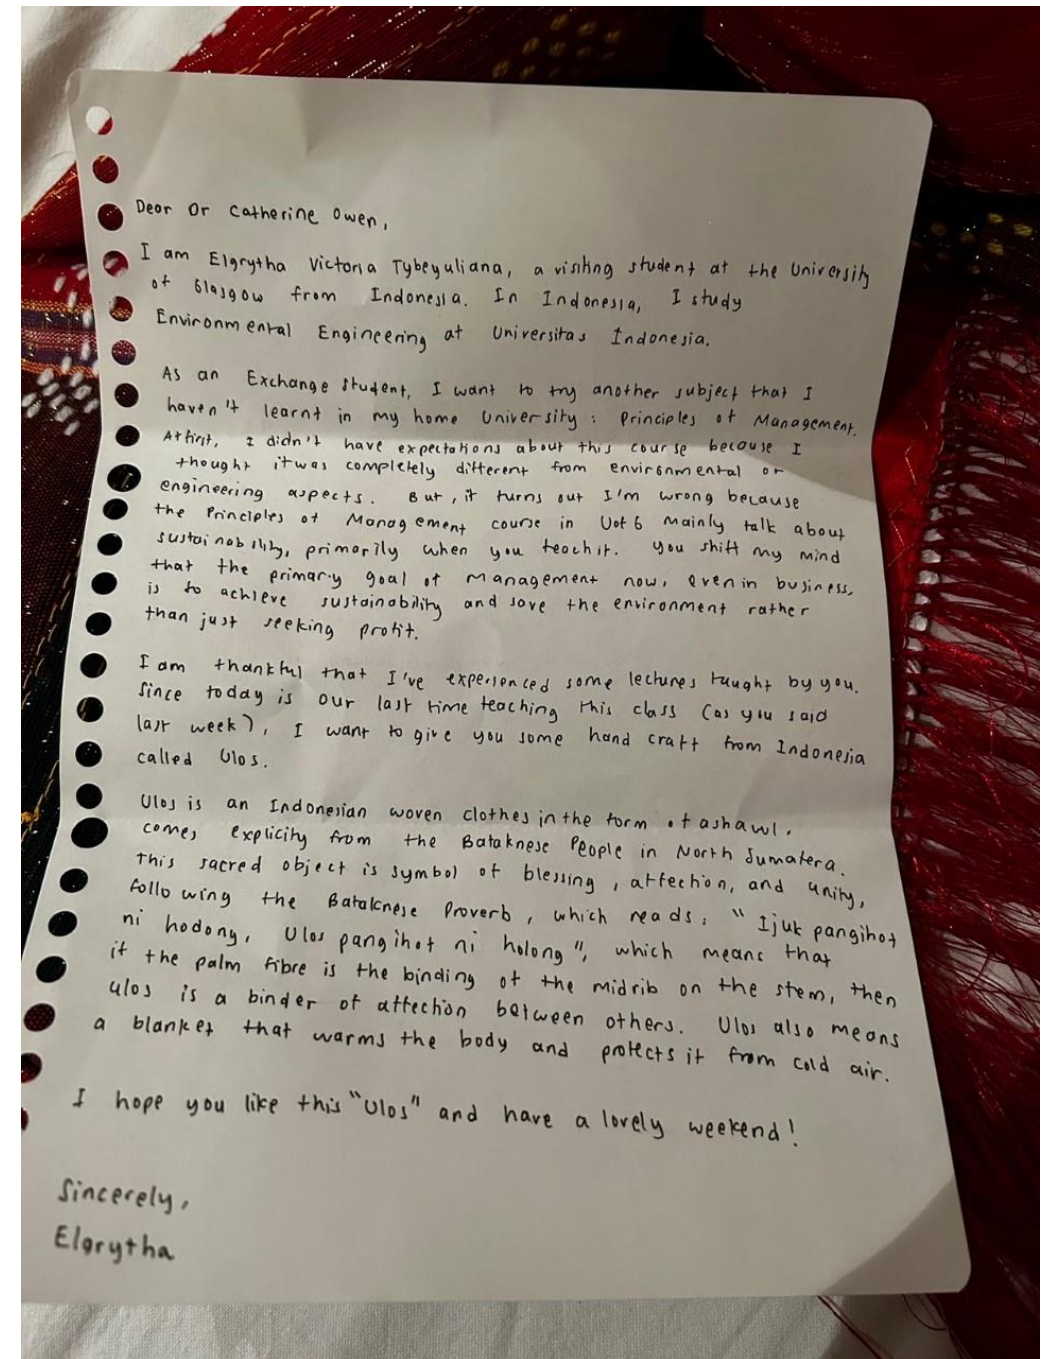 Dear Dr Catherine Owen,
I am Elgrytha Victoria Tybeyuliana, a visiting student at the University
of Glasgow from Indonesia. In Indonesia, I study
Environmental Engineering at Universitas Indonesia.
As an Exchange student, I want to try another subject that I
haven't learnt in my home University : Principles of Management.
At first, I didn't have expectations about this course because I
thought it was completely different from environmental or
engineering aspects. But, it turns out I'm wrong because
the Principles of Management course in UofG mainly talk about
sustainability, primarily when you teach it. You shift my mind
that the primary goal of management now, even in business,
is to achieve sustainability and save the environment rather
than just seeking profit.
I am thankful that I've experienced some lectures taught by you.
Since today is our last time teaching this class (as you said
last week), I want to give you some hand craft from Indonesia
called Ulos.
Ulos is an Indonesian woven clothes in the form of a shawl,
comes explicity from the Bataknese People in North Sumatera.
This sacred object is symbol of blessing, affection, and unity,
following the Bataknese Proverb, which reads: "Ijuk pangihot
ni hodong, Ulos pangihot ni holong", which means that
if the palm fibre is the binding of the midrib on the stem, then
ulos is a binder of affection between others. Ulos also means
a blanket that warms the body and protects it from cold air.
I hope you like this "Ulos" and have a lovely weekend!
Sincerely,
Elgrytha